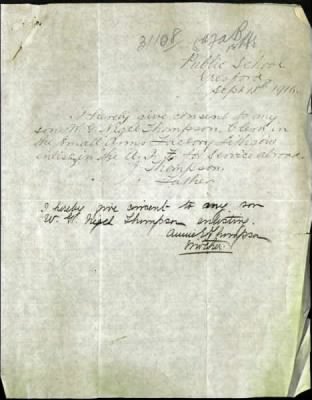 31108
Public School
Gresford
Sept 11th 1916.
I Hereby give consent to my
son W. G. Nigel Thompson Clerk in
the Small Arms Factory Lithgow
enlist in the A.I.F. for Service abroad
Thompson.
Father
I hereby give consent to my son
W. G. Nigel Thompson enlisting.
Annie Thompson
Mother.